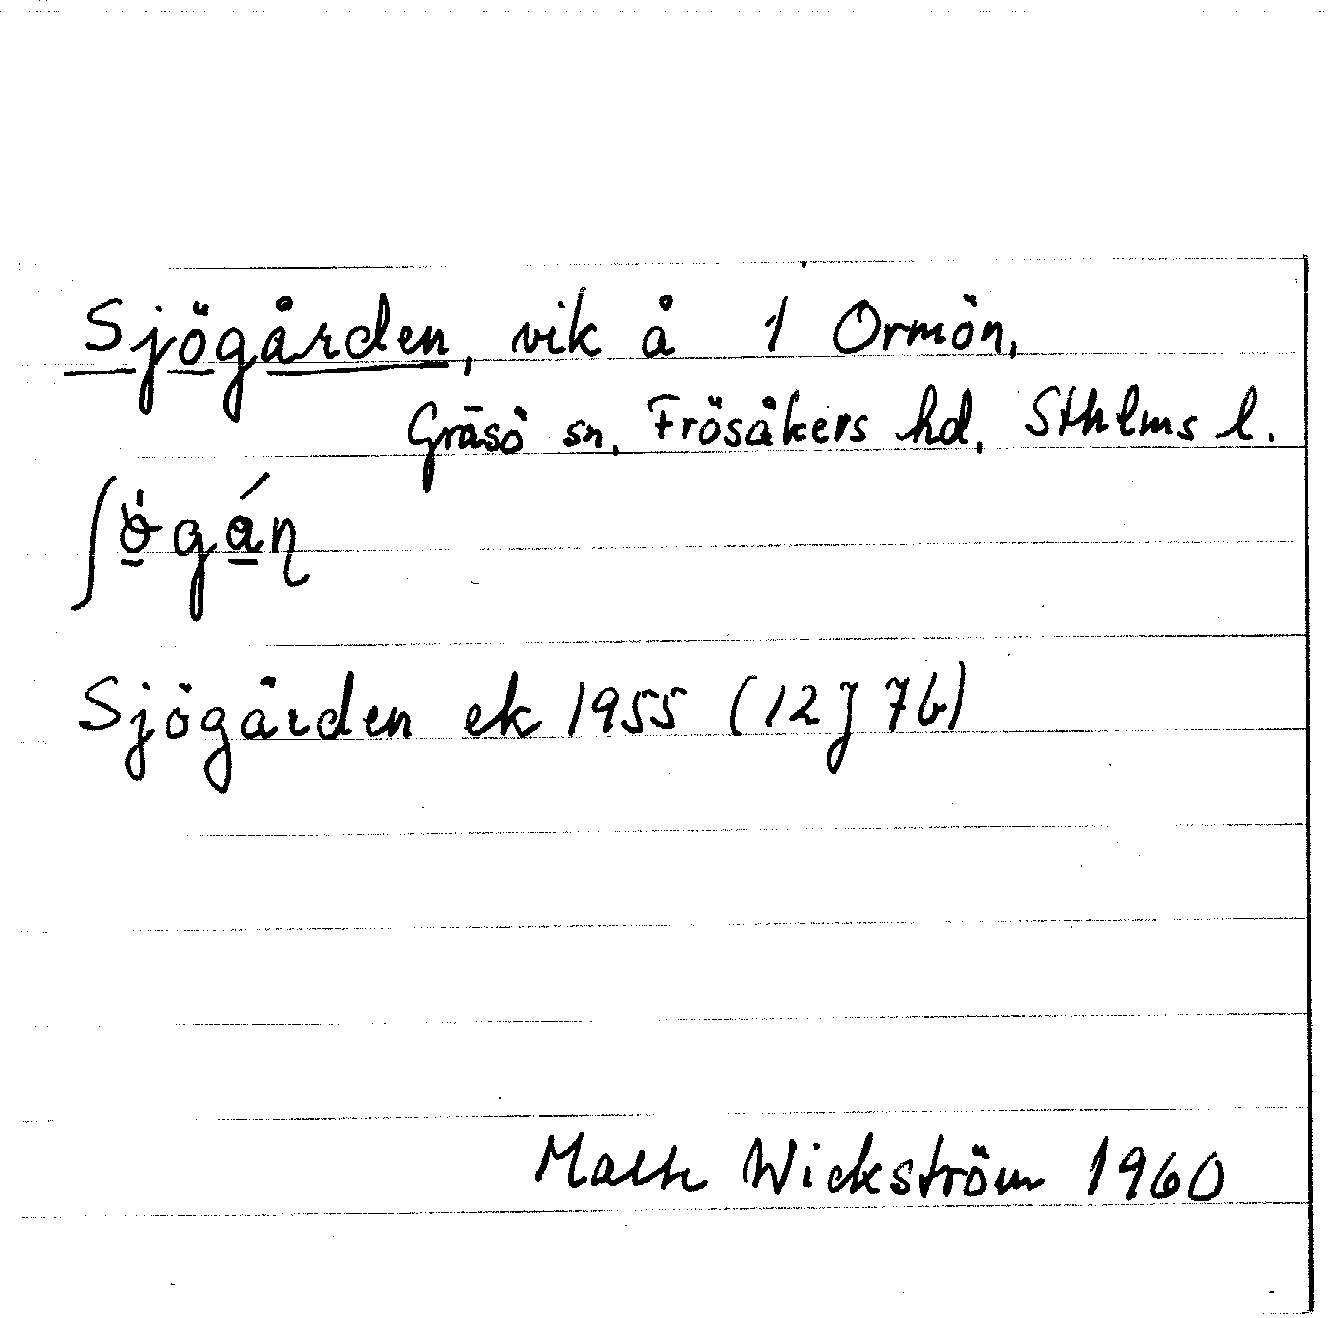 Sjögården, vik å 1 Ormön,
Gräsö sn, Frösåkers hd, Sthlms l.
Sjögården ek 1955 (12J 7b)
Wickström 1960